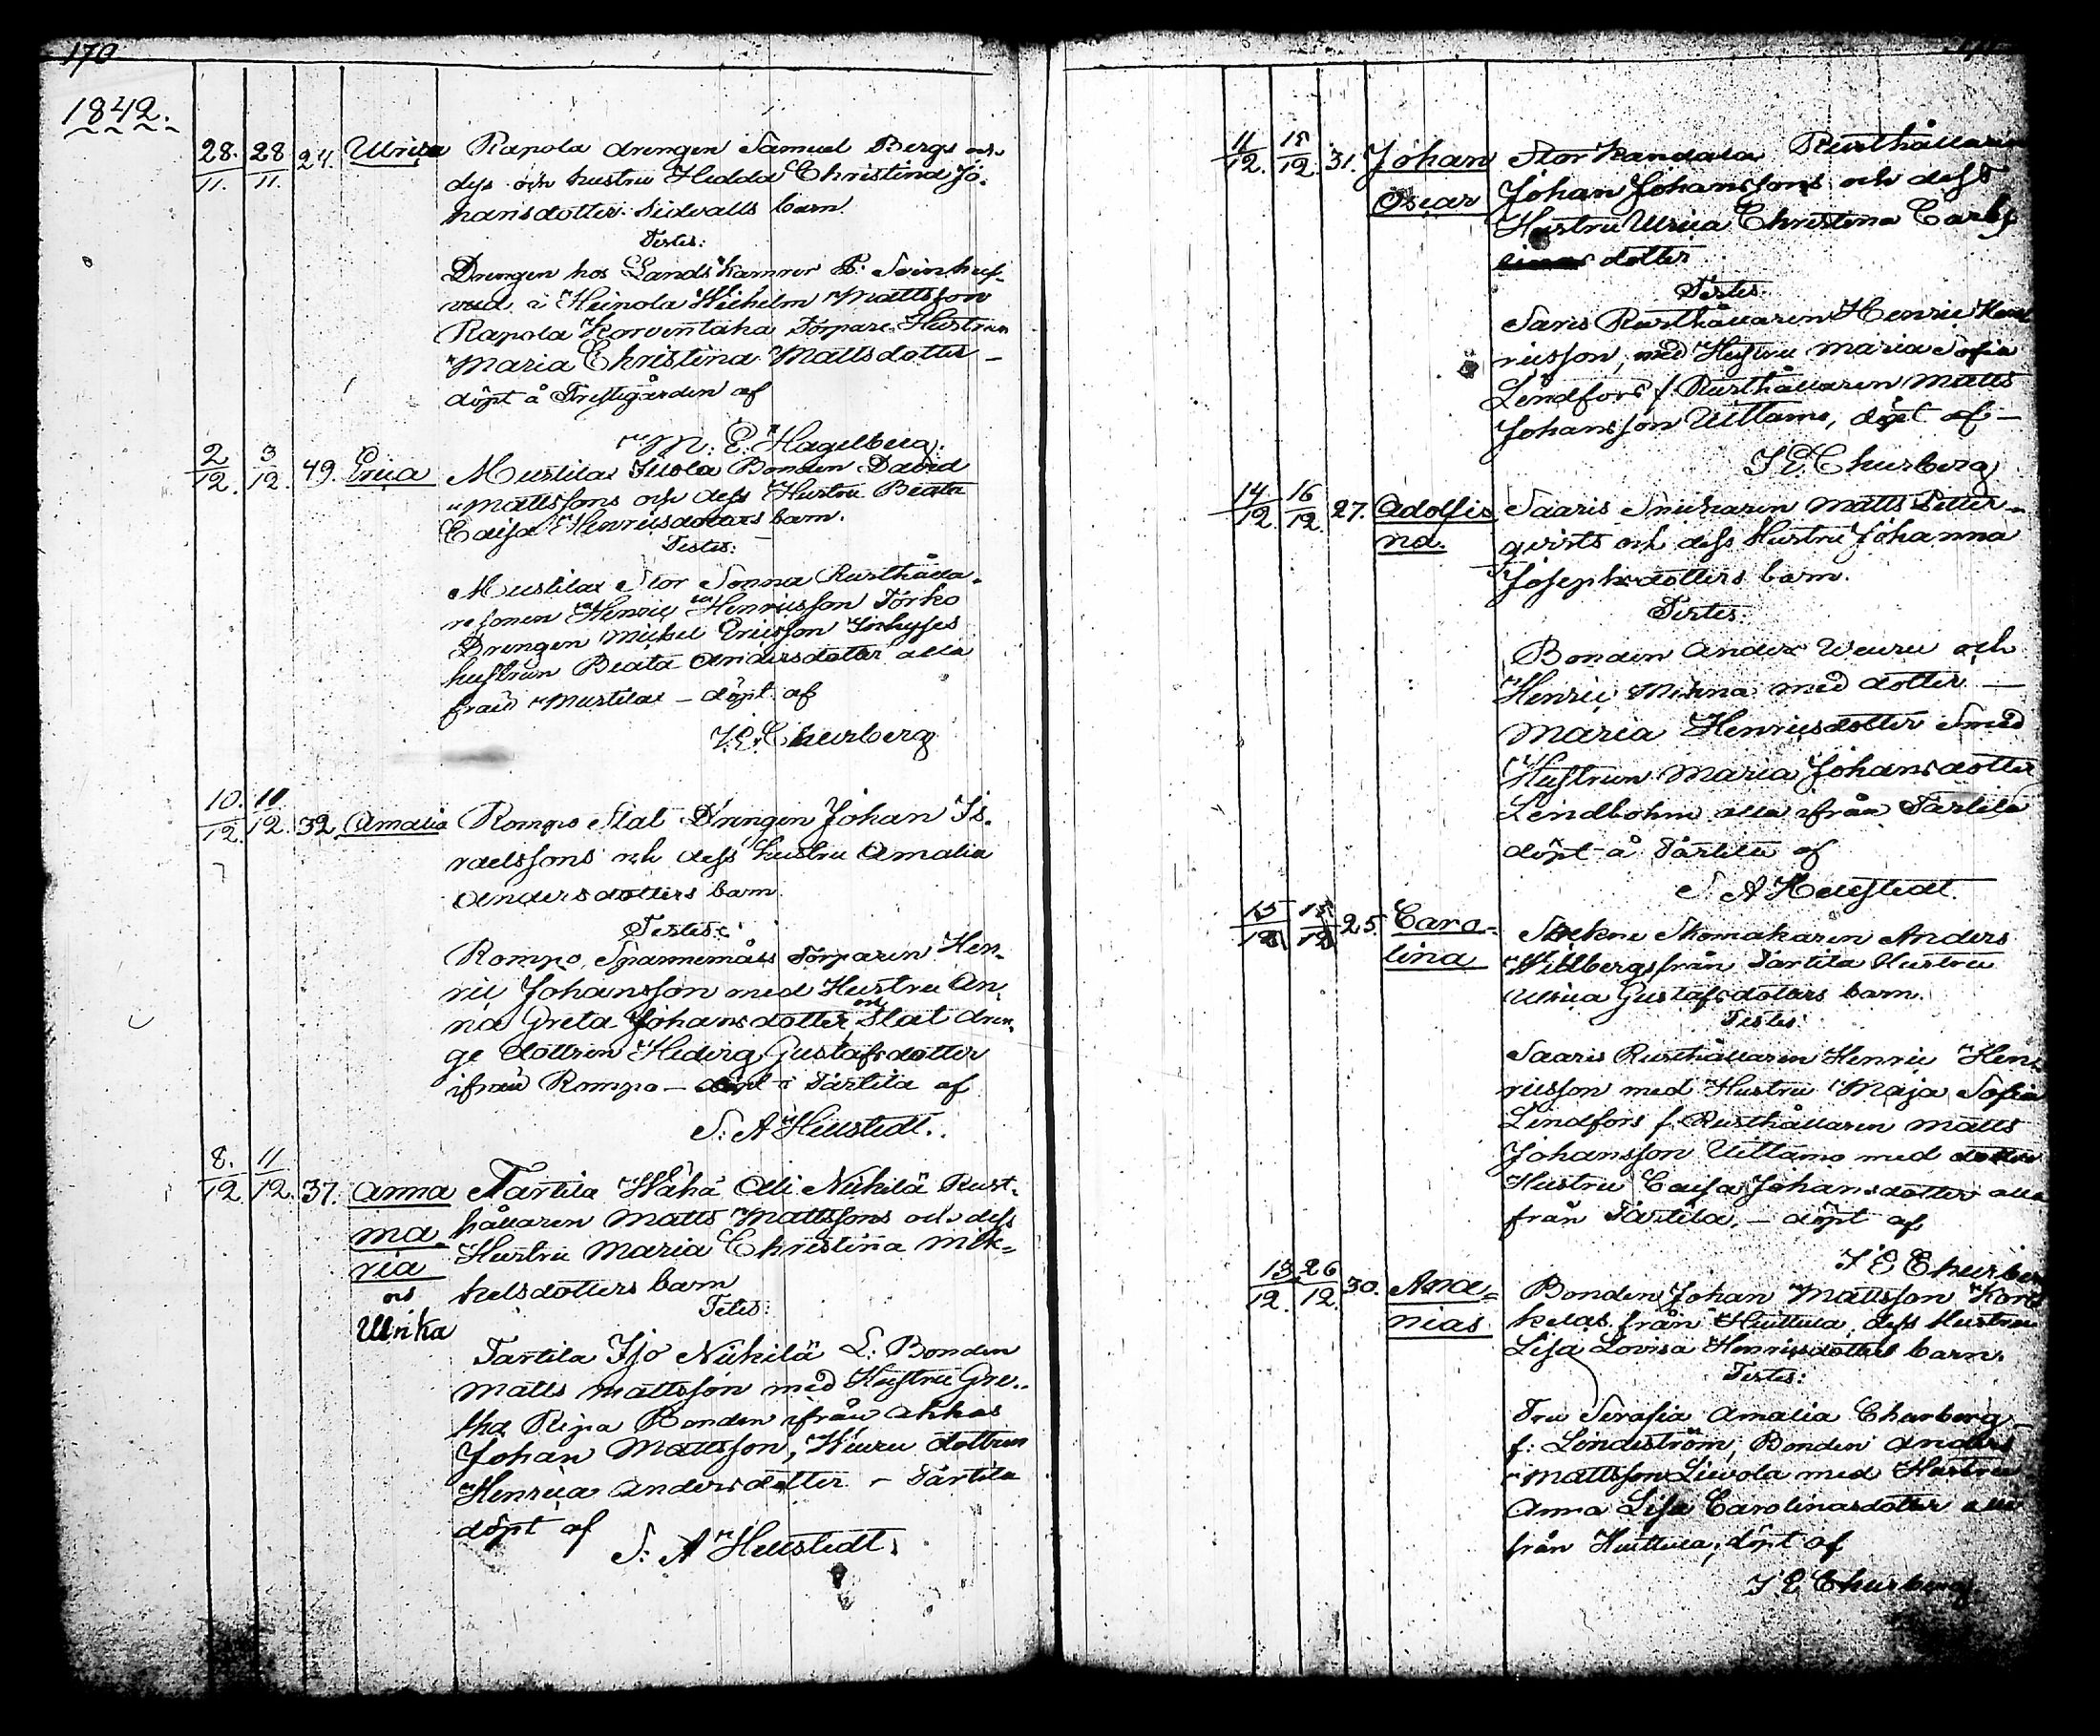 170
1842.
28. 28 24. Ulrica Rapola drengen Samuel Bergs och
11. 11. dess och hustru Hedda Christina Jo-
hansdotter Sidvalls barn.
Testes:
Drengen hos Lands Kamrer P: Svinhuf-
vud i Heinola Wilhelm Mattsson
Rapola Korventaka Torpare Hustrun
Maria Christina Mattsdotter –
döpt å Prestgården af
M: E. Hagelberg.
2 3 49. Erica Mustila Bonden David
12. 12. Mattssons och dess Hustru Beata
Caisa Henricsdotters barn.
Testes:
Mustila Stor Rusthålla-
re sonen Henric Henricsson
Drengen Michel Ericsson Inhyses
hustrun Beata Andersdotter alla
från Mustila – döpt af
F. E. Churberg
10. 10
12. 12. 32. Amalia Rompo Stat Drengen Johan Is-
raelssons och dess hustru Amalia
Andersdotters barn.
Testes:
Rompo Torparen Hen-
ric Johansson med Hustru An-
na Greta Johansdotter, och Stat dren-
ge dottren Hedvig Gustafsdotter
ifrån Rompo – döpt i Tartila af
S: A Hellstedt.
8. 11
12. 12. 37. Anna Tartila Wähä Olli Nikilä Rust-
ma hållaren Matts Mattssons och dess
ria Hustru Maria Christina Mik-
och kelsdotters barn
Ulrika Testes:
Tartila Iso Nikilä L: Bonden
Matts Mattsson med Hustru Gre-
tha Ripa Bonden ifrån Ahkas
Johan Mattsson, dottren
Henrica Andersdotter – Tartila
döpt af
S: A Hellstedt.
11 15
12. 12. 31. Johan Stor Kandala Rusthållaren
Oscar Johan Johanssons och dess
Hustru Ulrica Christina Carls
dotter
Testes:
Saris Rusthållaren Henric Hen
ricsson, med Hustru Maria Sofia
Lindfors f. Rusthållaren Matts
Johansson Uttamo, döpt af –
F E Churberg
14 16
12. 12. 27. Adolfi Saaris Snickaren Matts Petter-
na. qvists och dess Hustru Johanna
Josephsdotters barn.
Testes:
Bonden Anders och
Henric med dotter –
Maria Henricsdotter Smed
Hustrun Maria Johansdotter
Lindbohm alla ifrån Tartila
döpt å Tartila af
S. A Hellstedt.
15 15
12 12 25. Caro- Skomakaren Anders
lina Willbergs från Tartila Hustru
Ulrica Gustafsdotters barn.
Testes:
Saaris Rusthållaren Henric Hen-
ricsson med Hustru Maja Sofia
Lindfors f. Rusthållaren Matts
Johansson Uttamo med
Hustru Caisa Johansdotter alla
från Tartila, – döpt af
F E Churberg
13. 26
12. 12. 30. Ana- Bonden Johan Mattsson
nias från Huittula, dess Hustru
Lisa Lovisa Henricsdotters barn.
Testes:
Fru Serafia Amalia Churberg
f: Lindeström, Bonden Anders
Mattsson med Hustru
Anna Lisa Carolinasdotter alla
från Huittula, döpt af
F E Churberg.